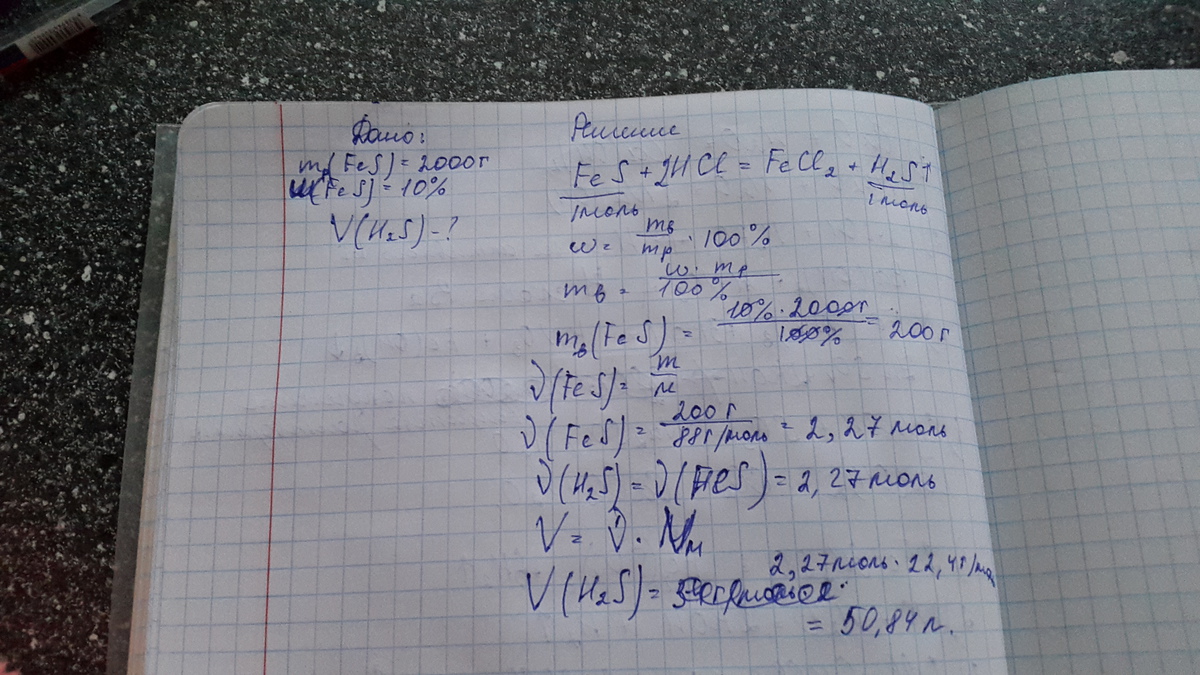 Дано:
mр(FeS) = 2000г
ω(FeS) = 10%
V(H₂S) - ?
Решение
FeS + 2HCl = FeCl₂ + H₂S↑
1моль 1моль
ω = mв/mр · 100%
mв = ω · mр/100%
mв(FeS) = 10% · 2000г/100% = 200г
ν(FeS) = m/M
ν(FeS) = 200г/88г/моль = 2,27 моль
ν(H₂S) = ν(FeS) = 2,27 моль
V = ν · Vм
2,27 моль · 22,4г/моль
V(H₂S) =
= 50,84 л.